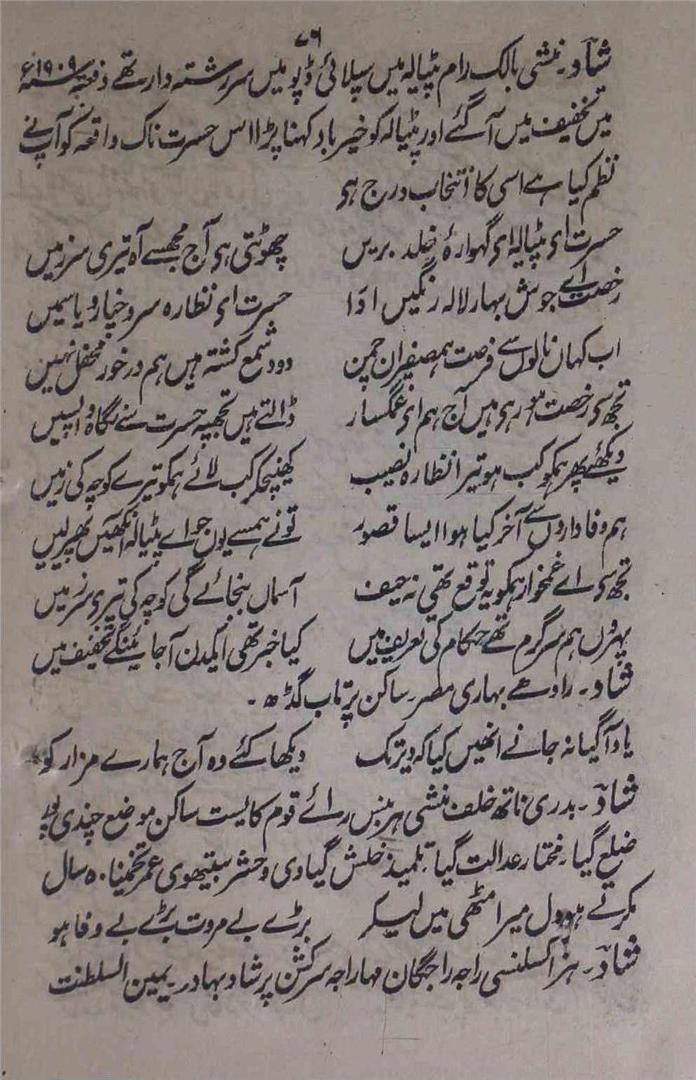 ۷۶
شاد۔ منشی بالک رام پٹیالہ میں سپلائی ڈپو میں سررشتہ دار تھے دفعۃً ۱۹۰۹ء
میں تخفیف میں آگئے اور پٹیالہ کو خیر باد کہنا پڑا اس حسرت ناک واقعہ کو آپ نے
نظم کیا ہے اسی کا انتخاب درج ہو
حسرت ای پٹیالہ ای گہوارۂ خلد بریں چھوٹتی ہو آج مجھسے آہ تیری سرزمیں
رخصت اے جوش بہار لالۂ رنگیں ادا حسرت ای نظارہ سرو خیار و یاسمیں
اب کہاں نالوں سے فرصت ہمصفیران چمن دود شمع کشتہ ہیں ہم درخور محفل نہیں
تجھ سی رخصت ہو رہی ہیں آج ہم ای غمگسار ڈالتے ہیں تجھپہ حسرت سے نگاہ واپسیں
دیکھئے پھر ہمکو کب ہو تیرا نظارہ نصیب کھینچکر کب لائے ہمکو تیرے کوچہ کی زمیں
ہم وفاداروں سے آخر کیا ہوا ایسا قصور تونے ہمسے یوں جو اے پٹیالہ آنکھیں پھیر لیں
تجھ سی اے غمخوار ہمکو یہ توقع تھی نہ حیف آسماں بنجائے گی کوچہ کی تیری سرزمیں
پہروں ہم سرگرم تھے حکام کی تعریف میں کیا خبر تھی ایکدن آجائینگے تخفیف میں
شاد۔ رادھے بہاری مصر۔ ساکن پرتاب گڈھ۔
یاد آگیا نہ جانے انھیں کیا کہ دیر تک دیکھا کئے وہ آج ہمارے مزار کو
شاد۔ بدری ناتھ خلف منشی ہر بنس رائے قوم کایست ساکن موضع چندی پور
ضلع گیا۔ مختار عدالت گیا۔ تلمیذ خلش گیاوی و حشر سیتھوی عمر تخمیناً ۵۰ سال
مکرتے ہو دل میرا مٹھی میں لیکر بڑے بے مروت بڑے بے وفا ہو
شاد۔ ہز اکسلنسی راجہ راجگان مہاراجہ سر کشن پرشاد بہادر یمین السلطنت